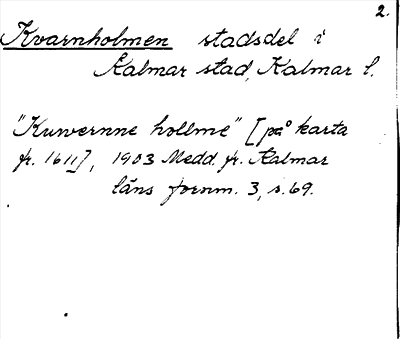 2.
Kvarnholmen stadsdel i
Kalmar stad, Kalmar l.
"Kuwernne hollme" [på karta
fr. 1611], 1903 Medd. fr. Kalmar
läns fornm. 3, s. 69.